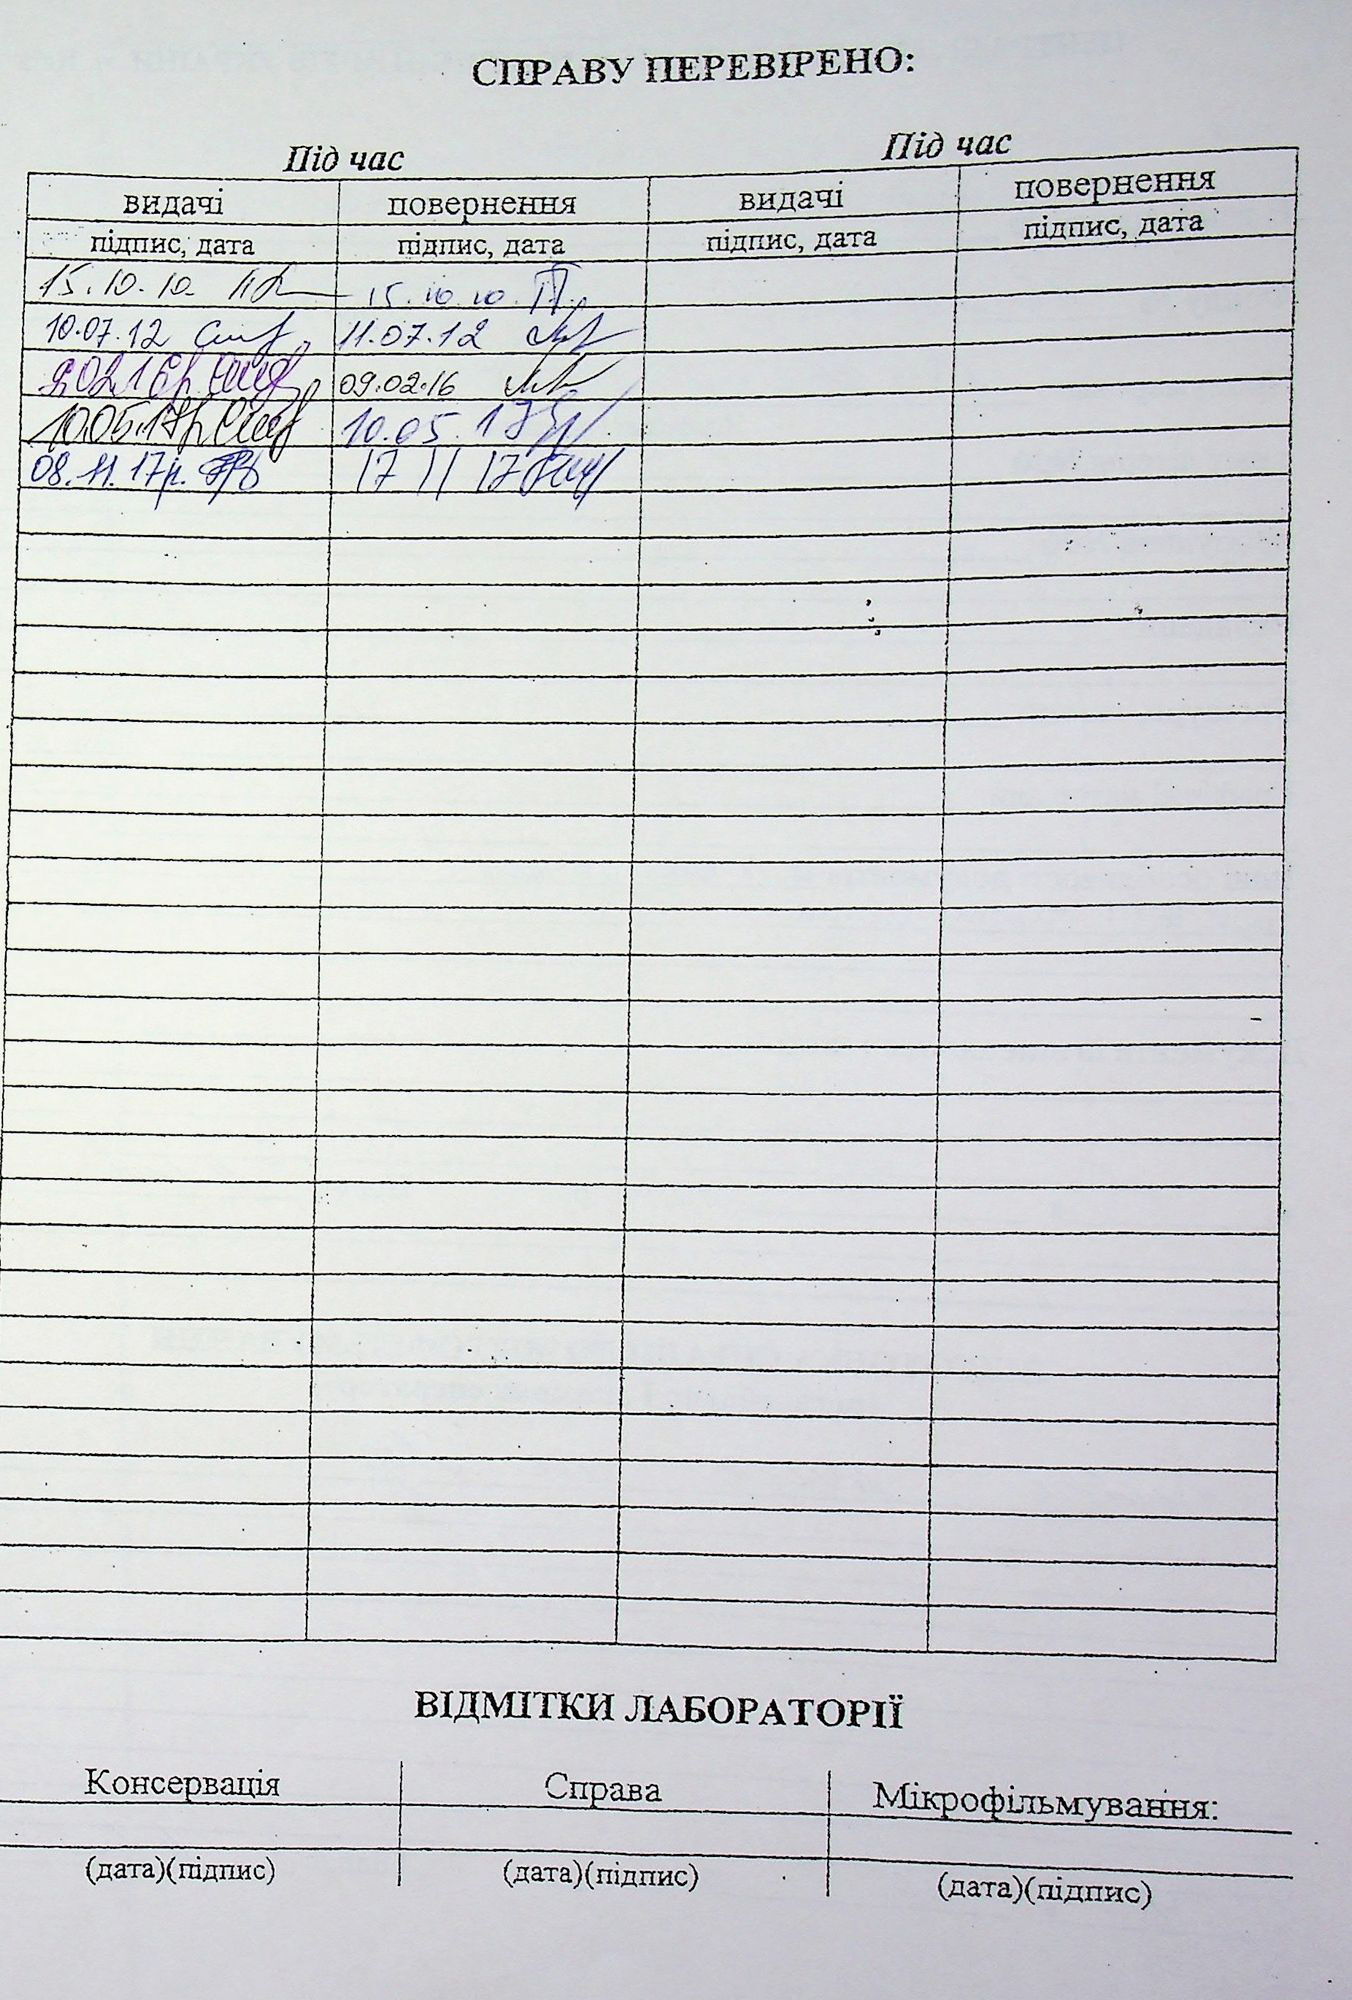 СПРАВУ ПЕРЕВІРЕНО:
Під час Під час
видачі повернення видачі повернення
підпис, дата підпис, дата підпис, дата підпис, дата
15.10.10. 15.10.10.
10.07.12 11.07.12
9.02.16р 09.02.16
10.05.17р 10.05.17
08.11.17р. 17 11 17
ВІДМІТКИ ЛАБОРАТОРІЇ
Консервація Справа Мікрофільмування:
(дата)(підпис) (дата)(підпис) (дата)(підпис)